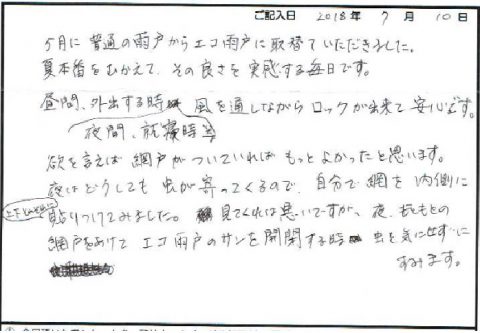 ご記入日 2018年 7月 10日
5月に普通の雨戸からエコ雨戸に取替ていただきました。
夏本番をむかえて、その良さを実感する毎日です。
昼間、外出する時 風を通しながらロックが出来て安心です。
夜間、就寝時
欲を言えば網戸がついていればもっとよかったと思います。
夜はどうしても虫が寄ってくるので、自分で網を内側に
貼りつけてみました。見てくれは悪いですが、夜、もともとの
網戸をあけてエコ雨戸のサンを開閉する時 虫を気にせずに
すみます。